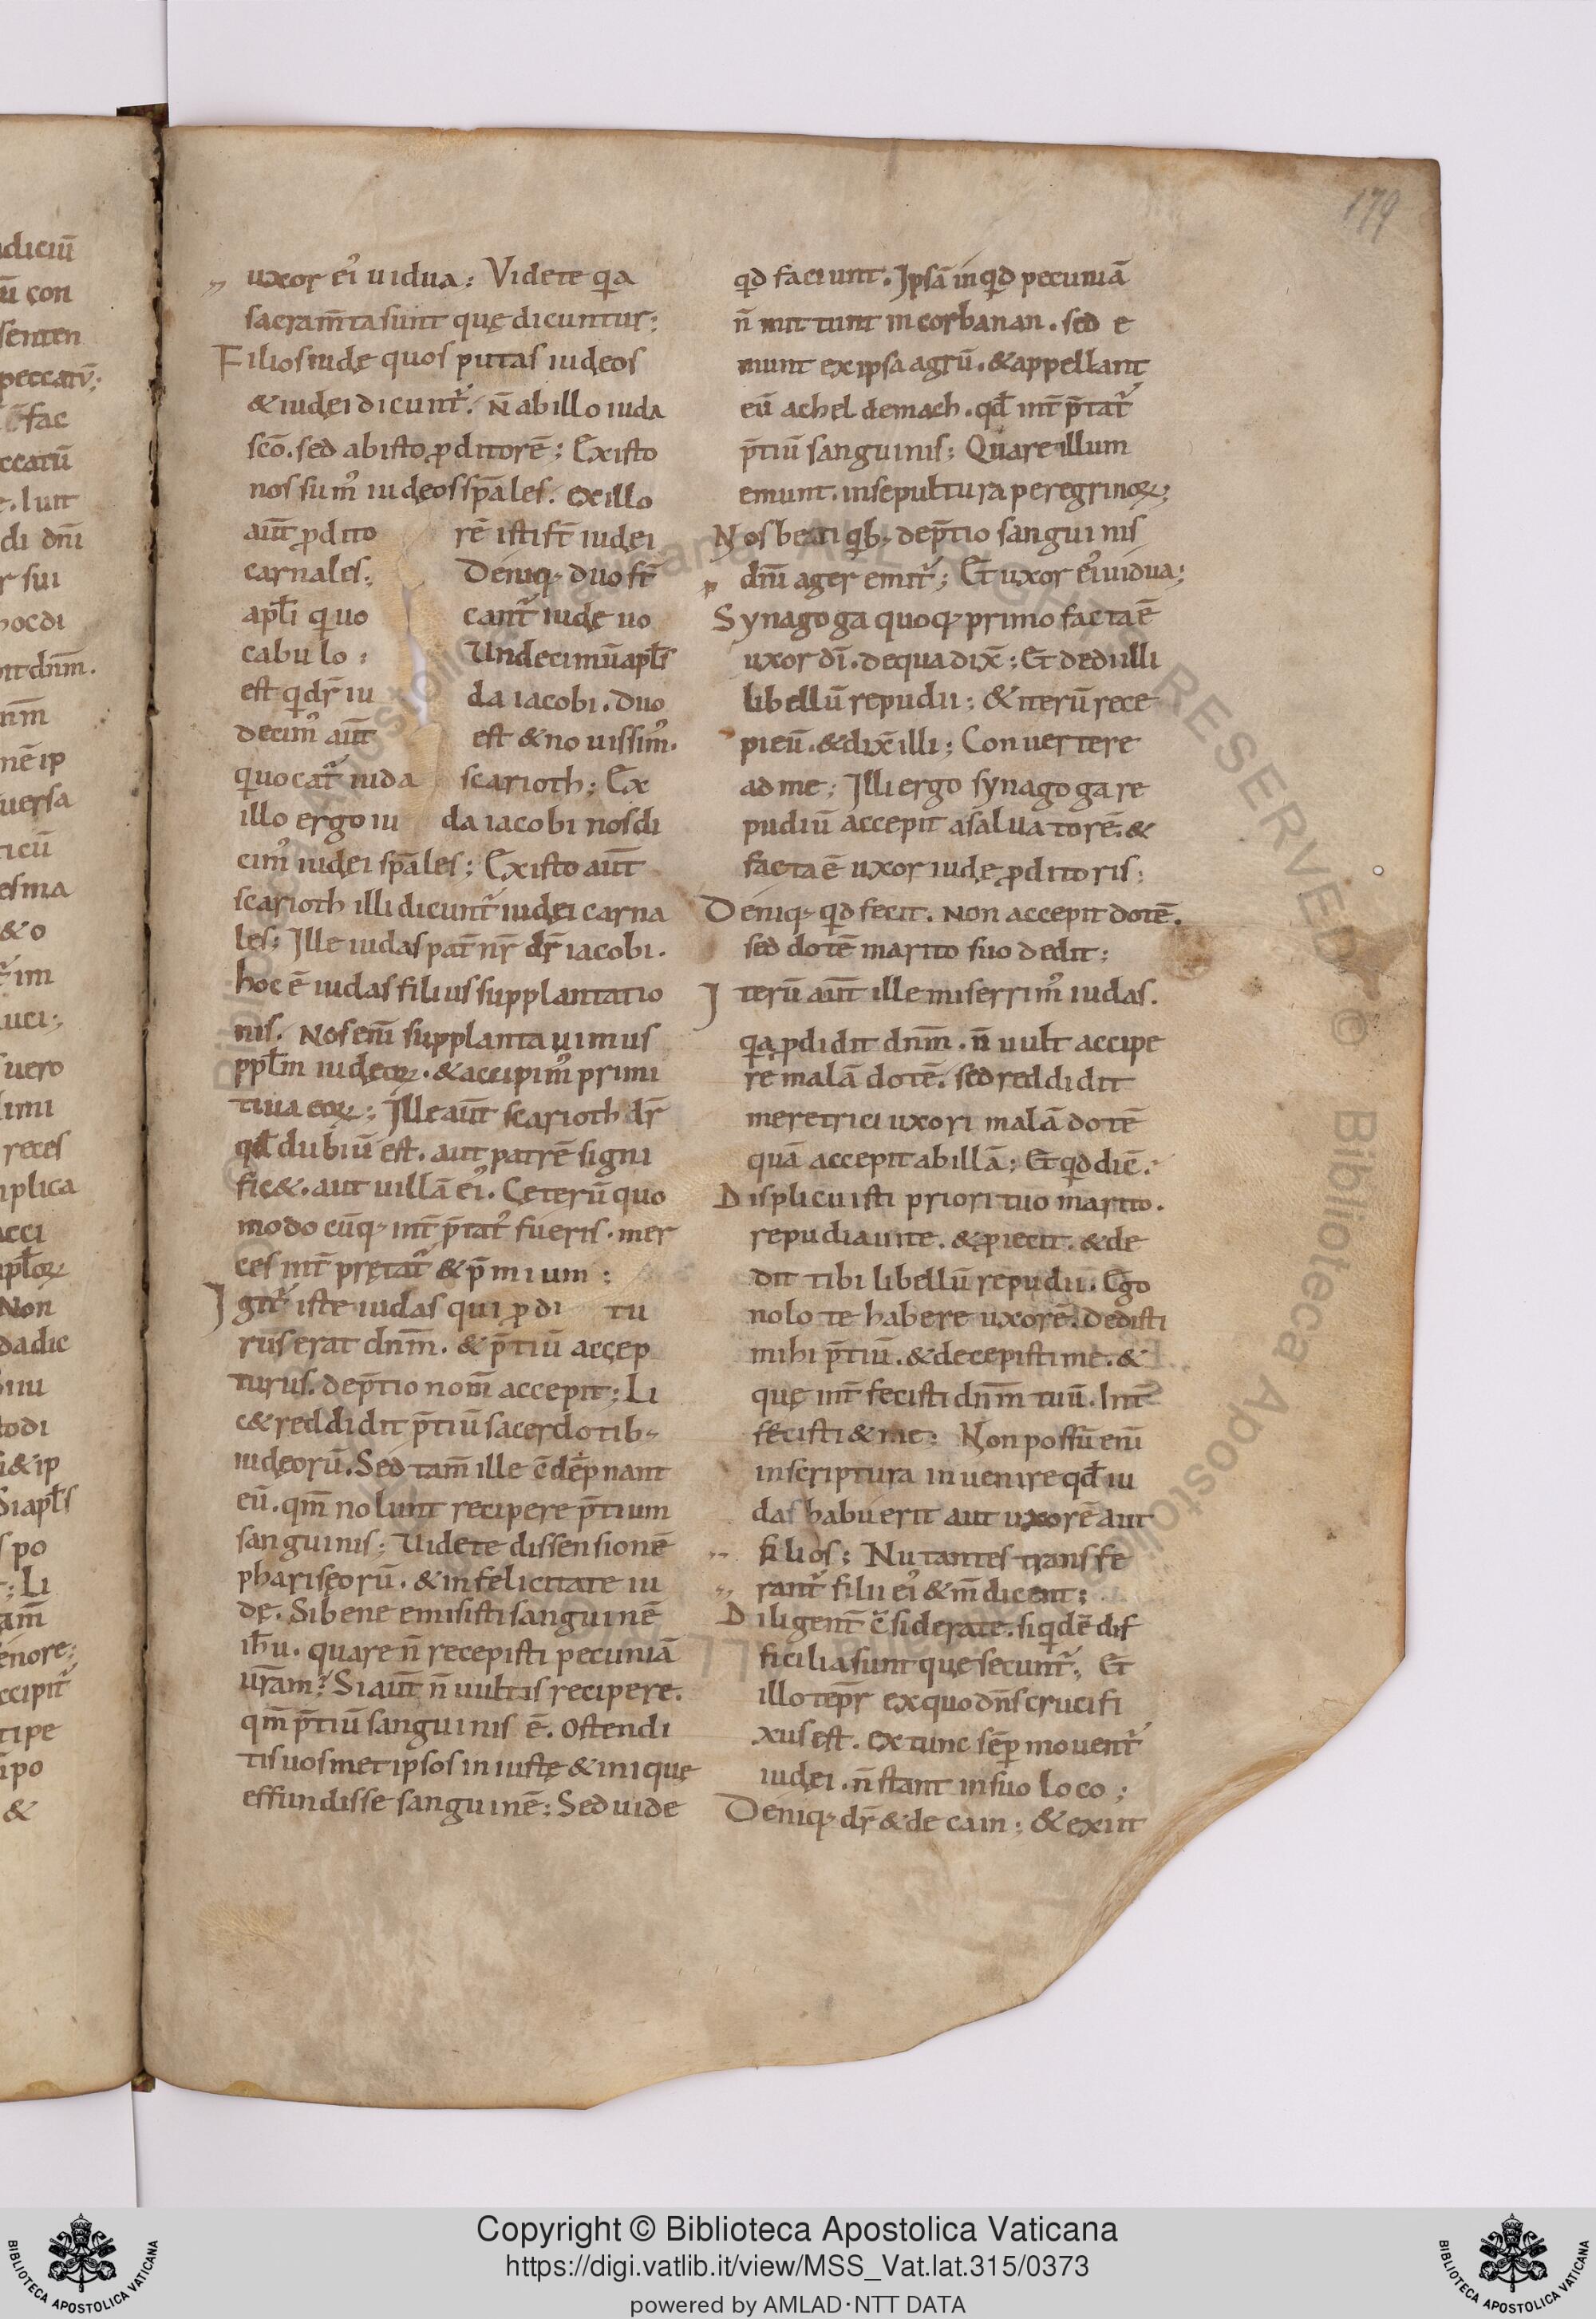 179
uxor ei᾽ uidua; Videte q̇a
sacram̄ta sunt quę dicuntur;
Filios iudę quos putas iudęos
& iudęi dicunt᷑. n̄ ab illo iuda
scō. sed ab isto ꝓditorē; Ex isto
nos sum᾽ iudęos sp̄ales. ex illo
aūt ꝓdito rē isti st̄ iudęi
carnales; Deniq; duo st̄
apl̄i q̇ uo cant᷑ iudę uo
cabulo; Undecimū apl̄s
est q̇ dr̄ iu da iacobi. duo
decim᾽ aūt est & nouissim᾽.
q̇ uocat᷑ iuda scarioth; Ex
illo ergo iu da iacobi nos di
cim᾽ iudęi sp̄ales; Ex isto aūt
scarioth illi dicunt᷑ iudęi carna
les; Ille iudas pat̄ nr̄ dr̄ iacobi.
hoc ē iudas filius supplantatio
nis. Nos enī supplantauimus
ppl̄m iudęoꝝ. & accipim᾽ primi
tiua eoꝝ; Ille aūt scarioth dr̄
qđ dubiū est. aut patrē signi
fic&. aut uillā ei᾽. Ceterū quo
modo cūq; int̄p̄tat᷑ fueris. mer
ces int̄pretat᷑ & p̄mium;
Igit᷑ iste iudas qui ꝓdi tu
rus erat dn̄m. & p̄tiū accep
turus. de p̄tio nom̄ accepit; Li
c& reddidit p̄tiū sacerdotib;
iudęorū. Sed tam̄ ille
eū. qm̄ nolunt recipere p̄tium
sanguinis; Uidete dissensionē
pharisęorū. & infelicitate iu
dę. Si bene emisisti sanguinē
ih̄u. quare n̄ recepisti pecuniā
ur̄am? Si aūt n̄ uultis recipere.
qm̄ p̄tiū sanguinis ē. ostendi
tis uosmet ipsos iniustę & inique
effundisse sanguinē; Sed uide
qd faciunt. Ipsā inqd pecuniā
n̄ mittunt in corbanan. sed e
munt ex ipsa agrū. & appellant
eū achel demach. qđ int̄p̄tat᷑
p̄tiū sanguinis; Quare illum
emunt. in sepultura peregrinoꝝ;
Nos beati q̇b; de p̄tio sanguinis
dn̄i ager emit᷑; Et uxor ei᾽ uidua;
Synagoga quoq; primo facta ē
uxor dī. de qua dix̄; Et dedi illi
libellū repudii; & iterū rece
pi eū. & dix̄ illi; Conuertere
ad me; Illi ergo synagoga re
pudiū accepit a saluatorē. &
facta ē uxor iudę ꝓditoris;
Deniq; qd fecit. Non accepit dotē.
sed dotē marito suo dedit;
Iterū aūt ille miserrim᾽ iudas.
q̇a ꝑdidit dn̄m. n̄ uult accipe
re malā dotē. sed reddidit
meretrici uxori malā dotē
quā accepit ab illā; Et qd diē.
Displicuisti priori tuo marito.
repudiauit te. & ꝓiecit. & de
dit tibi libellū repudii. Ego
nolo te habere uxorē. dedisti
mihi p̄tiū. & decepisti me. &
quę int̄fecisti dn̄m tuū. int̄
fecisti & me; Non possū enī
in scriptura inuenire qđ iu
das habuerit aut uxorē aut
filios; Nutantes transfe
rant᷑ filii ei᾽ & m̄dicent;
Diligent̄ c̄siderate. siq̇dē dif
ficilia sunt que secunt᷑; Et
illo tēpr̄ ex quo dn̄s crucifi
xus est. ex tunc sēp mouent᷑
iudęi. n̄ stant in suo loco;
Deniq; dr̄ & de cain; & exiit
Copyright © Biblioteca Apostolica Vaticana
https://digi.vatlib.it/view/MSS_Vat.lat.315/0373
powered by AMLAD·NTT DATA
BIBLIOTECA APOSTOLICA VATICANA
BIBLIOTECA APOSTOLICA VATICANA